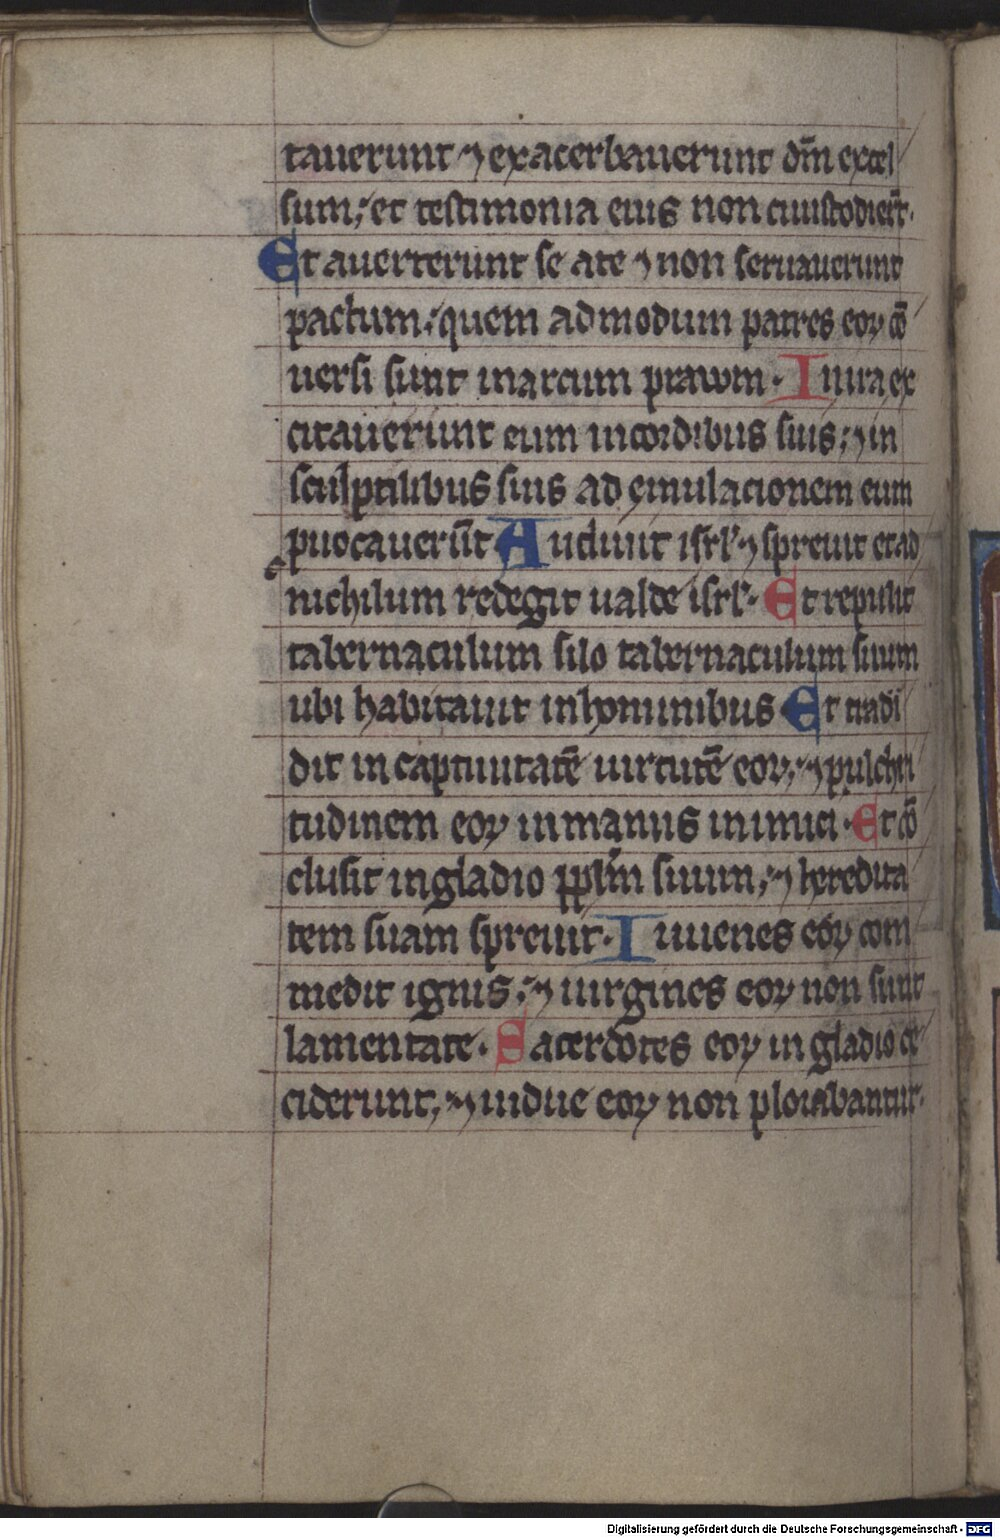 tauerunt ⁊ exacerbauerunt dm̄ excel
sum; et testimonia eius non cuustodier̄t.
Et auerterunt se ate ⁊ non seruauerunt
pactum; quem admodum patres eoꝝ cō
uersi sunt inarcum prawm. Inira ex
citauerunt eum incordibus suis; ⁊ in
sculptilibus suis ad emulacionem eum
puocauerūt Audiuit isrl' ⁊ spreuit etad
nichilum redegit ualde isrl'. Et repulit
tabernaculum silo tabernaculum suum
ubi habitauit inhominibus Et tradi
dit in captiuitatē uirtutē eoꝝ; ⁊ pulchri
tudinem eoꝝ inmanus inimici. Et cō
clusit ingladio ppl'm suum; ⁊ heredita
tem suam spreuit. Iuuenes eoꝝ com
medit ignis; ⁊ uirgines eoꝝ non sunt
lamentate. Sacerdotes eoꝝ in gladio ce
ciderunt; ⁊ uidue eoꝝ non plorabantur.
Digitalisierung gefördert durch die Deutsche Forschungsgemeinschaft - DFG